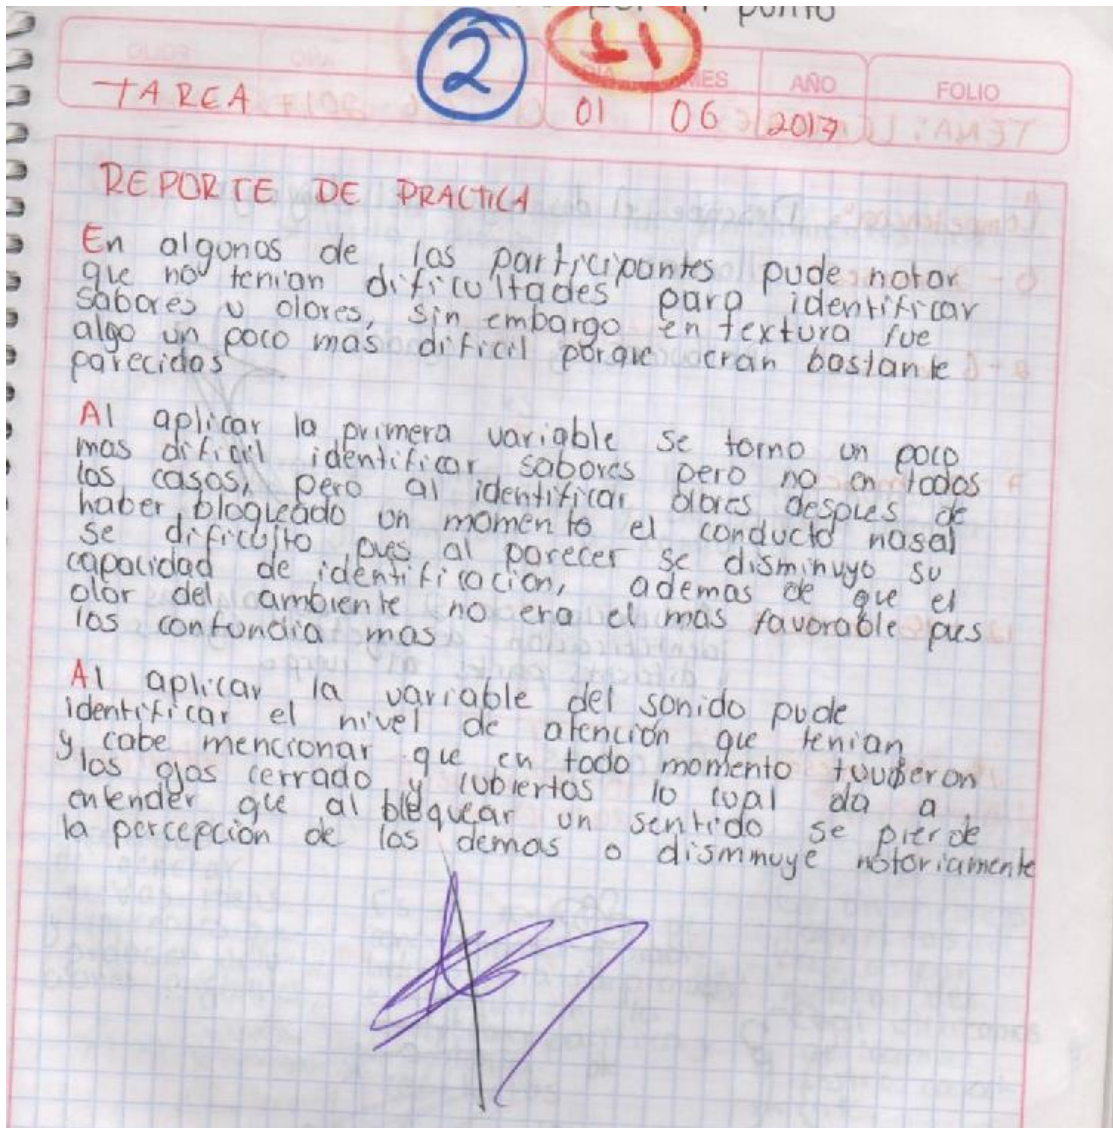 por 1 punto
2
+1
DIA MES AÑO FOLIO
TAREA 01 06 2017
REPORTE DE PRACTICA
En algunos de los participantes pude notar
que no tenian dificultades para identificar
sabores u olores, sin embargo en textura fue
algo un poco mas dificil porque eran bastante
parecidas
Al aplicar la primera variable se torno un poco
mas dificil identificar sabores pero no en todos
los casos, pero al identificar olores despues de
haber bloqueado un momento el conducto nasal
se dificulto pues al parecer se disminuyo su
capacidad de identificacion, ademas de que el
olor del ambiente no era el mas favorable pues
los confundia mas
Al aplicar la variable del sonido pude
identificar el nivel de atención que tenian
y cabe mencionar que en todo momento tuvieron
los ojos cerrado y cubiertos lo cual da a
entender que al bloquear un sentido se pierde
la percepción de los demas o dismnuye notoriamente